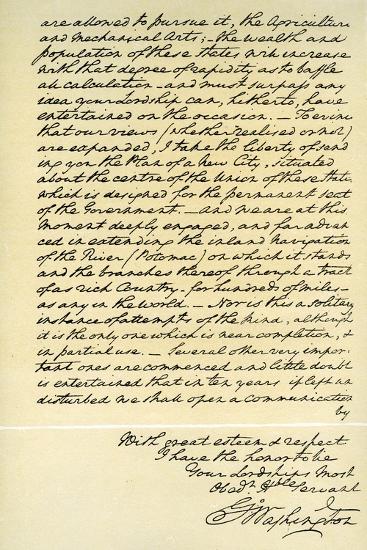 are allowed to pursue it, the Agriculture
and Mechanical Arts; – the wealth and
population of these States will increase
with that degree of rapidity as to baffle
all calculation – and must surpass any
idea your Lordship can, hitherto, have
entertained on the occasion. – To evince
that our views (whether realised or not)
are expanded, I take the liberty of send
ing you the Plan of a New City, situated
about the centre of the Union of these States
which is designed for the permanent seat
of the Government. – And we are at this
moment deeply engaged, and far advan
ced in extending the inland Navigation
of the River (Potomac) on which it stands
and the branches thereof through a tract
of as rich Country – for hundreds of miles –
as any in the world. – Nor is this a solitary
instance of attempts of the kind, although
it is the only one which is near completion, &
in partial use. – Several other very impor-
tant ones are commenced and little doubt
is entertained that in ten years if left un
disturbed we shall open a communication
by
With great esteem & respect
I have the honor to be
Your Lordships Most
Obedt. Hble Servant
Go Washington